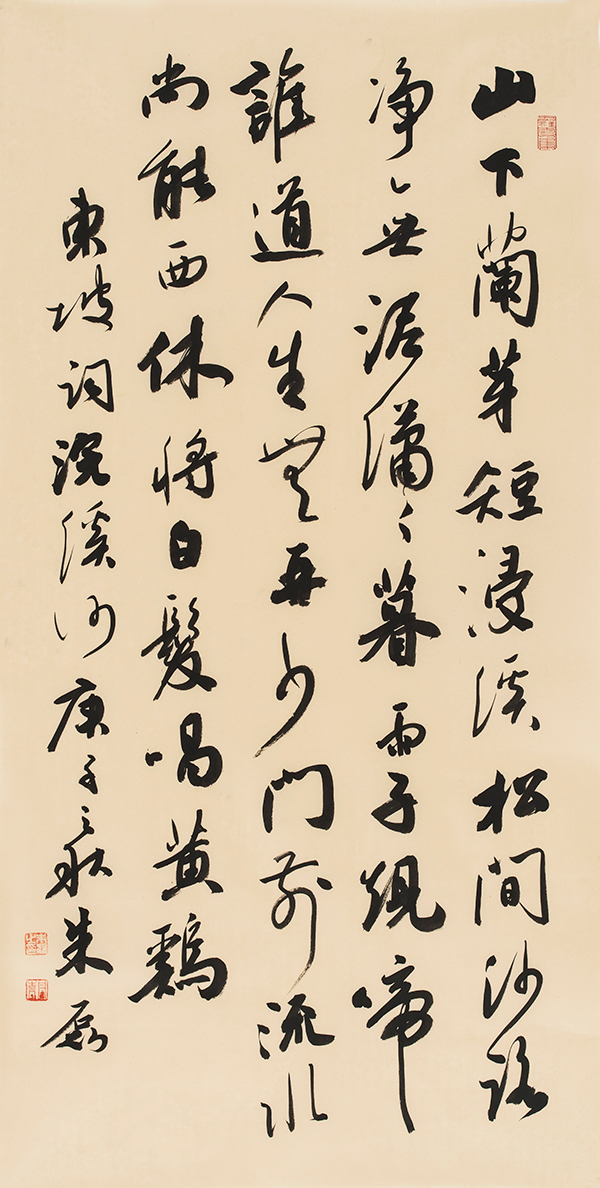 山下蘭芽短浸溪松間沙路
净〻無泥瀟〻暮雨子規啼
誰道人生無再少門前流水
尚能西休將白髮唱黄鷄
東坡詞浣溪沙庚子之秋朱磊